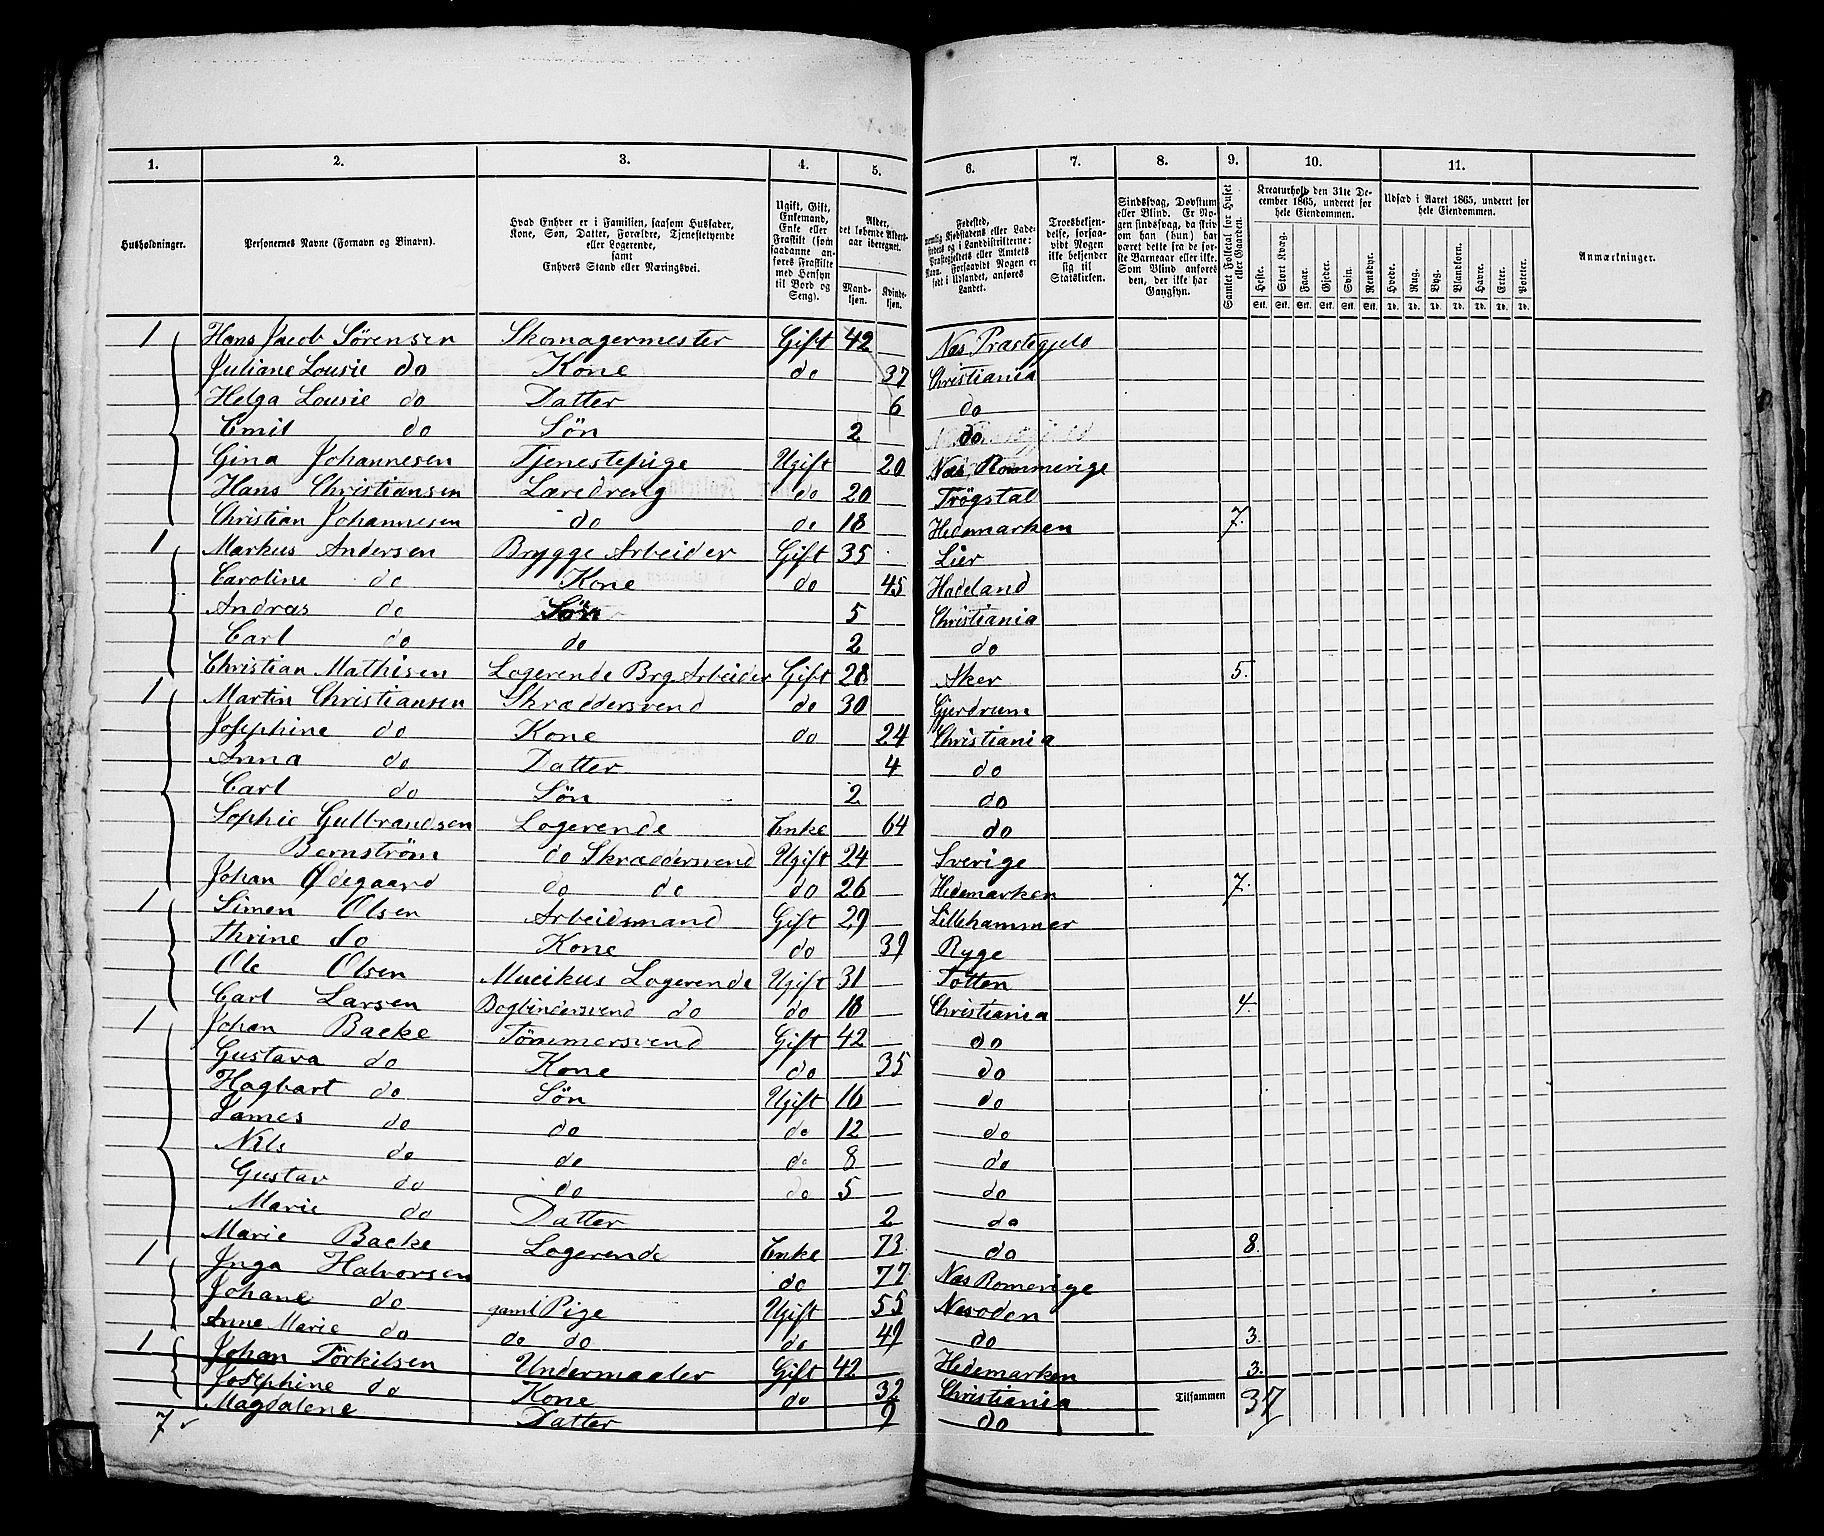 1. 2. 3. 4. 5. 6. 7. 8. 9. 10. 11.
Husholdninger. Personernes Navne (Fornavn og Binavn). Hvad Enhver er i Familien, saasom Husfader, Kone, Søn, Datter, Forældre, Tjenestetyende eller Logerende, samt Enhvers Stand eller Næringsvei. Ugift, Gift, Enkemand, Enke eller Fraskilt (som saadanne anføres Fraskilte med Hensyn til Bord og Seng). Alder, det løbende Alders-aar iberegnet. Mand-kjøn. Kvinde-kjøn. Fødested, nemlig Kjøbstadens eller Ladestedets og i Landdistrikterne: Præstegjeldets eller Amtets Navn. Forsaavidt Nogen er født i Udlandet, anføres Landet. Troesbekjendelse, forsaavidt Nogen ikke bekjender sig til Statskirken. Sindssvag, Døvstum eller Blind. Er Nogen sindssvag, da skriv om han (hun) har været dette fra de første Barneaar eller ikke. Som Blind anføres den, der ikke har Gangsyn. Samlet Folketal for Huset eller Gaarden. Kreaturhold den 31te December 1865, underet for hele Eiendommen. Udsæd i Aaret 1865, underet for hele Eiendommen. Anmærkninger.
Heste. Stort Kvæg. Faar. Gjeder. Svin. Rensdyr. Hvede. Rug. Byg. Blandkorn. Havre. Erter. Poteter.
Stk. Stk. Stk. Stk. Stk. Stk. Td. Td. Td. Td. Td. Td. Td.
1 Hans Jacob Sørensen Skomagermester Gift 42 Næs Præstegjeld
Juliane Lousie do Kone do 37 Christiania
Helga Lousie do Datter 6 do
Emil do Søn 2 do
Gina Johannesen Tjenestepige Ugift 20 Næs Rommerige
Hans Christiansen Læredreng do 20 Trøgstal
Christian Johannesen do do 18 Hedemarken 7.
1 Markus Andersen Brygge Arbeider Gift 35 Lier
Caroline do Kone do 45 Hadeland
Andreas do Søn 5 Christiania
Carl do do 2 do
Christian Mathisen Logerende Brg. Arbeider Gift 28 Aker 5.
1 Martin Christiansen Skræddersvend do 30 Gjerdrum
Josephine do Kone do 24 Christiania
Anna do Datter 4 do
Carl do Søn 2 do
Sophie Gulbrandsen Logerende Enke 64 do
Bernstrøm do Skræddersvend Ugift 24 Sverige
Johan Ødegaard do do do 26 Hedemarken 7.
1 Simen Olsen Arbeidsmand Gift 29 Lillehammer
Thrine do Kone do 39 Ryge
Ole Olsen Mucikus Logerende Ugift 31 Totten
Carl Larsen Bogbindersvend do do 18 Christiania 4.
1 Johan Backe Tømmersvend Gift 42 do
Gustava do Kone do 35 do
Hagbart do Søn Ugift 16 do
James do do do 12 do
Nils do do do 8 do
Gustav do do do 5 do
Marie do Datter 2 do
Marie Backe Logerende Enke 73 do 8.
1 Inga Halvorsen do 77 Næs Romerige
Johane do gaml Pige Ugift 55 Nesoden
Anne Marie do do do do 49 do 3.
1 Johan Törkilsen Undermaaler Gift 42 Hedemarken 3.
Josephine do Kone do 32 Christiania Tilsammen 37
Magdalene Datter 9 do
7